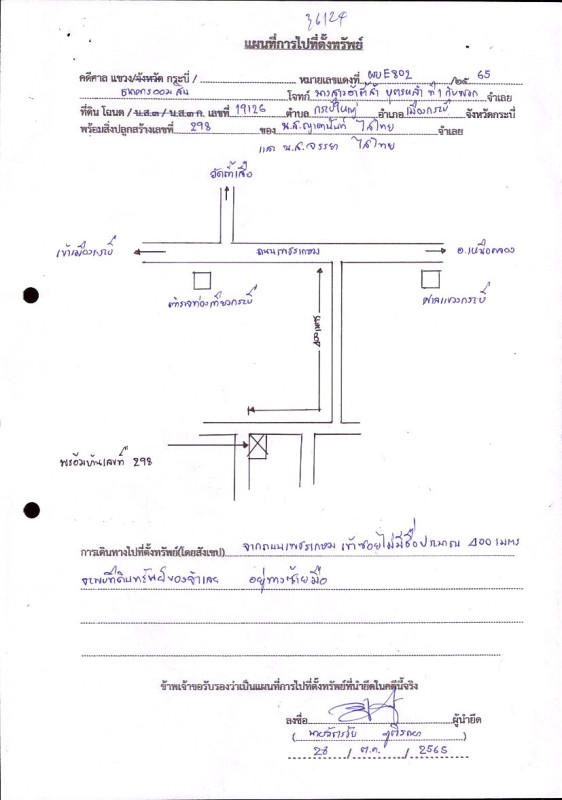 36/24
แผนที่การไปที่ตั้งทรัพย์
คดีศาล แขวง/จังหวัด กระบี่ / หมายเลขแดงที่ ผบE802 /๒๕ 65
ธนาคารออมสิน โจทก์ จำเลย
ที่ดิน โฉนด / น.ส.๓ / น.ส.๓ ก. เลขที่ 19126 ตำบล กระบี่ใหญ่ อำเภอ เมืองกระบี่ จังหวัดกระบี่
พร้อมสิ่งปลูกสร้างเลขที่ 298 ของ น.ส. ไสไทย จำเลย
และ น.ส. จรรยา ไสไทย
วัดถ้ำเสือ
เข้าเมืองกระบี่
ถนนเพชรเกษม
อ.เหนือคลอง
ตำรวจท่องเที่ยวกระบี่
ศาลแขวงกระบี่
400 เมตร
พร้อมบ้านเลขที่ 298
การเดินทางไปที่ตั้งทรัพย์(โดยสังเขป) จากถนนเพชรเกษม เข้าซอยไม่มีชื่อประมาณ 400 เมตร
จะพบที่ดินทรัพย์ของจำเลย อยู่ทางซ้ายมือ
ข้าพเจ้าขอรับรองว่าเป็นแผนที่การไปที่ตั้งทรัพย์ที่นำยึดในคดีนี้จริง
ลงชื่อ ผู้นำยึด
28 / ต.ค. / 2565